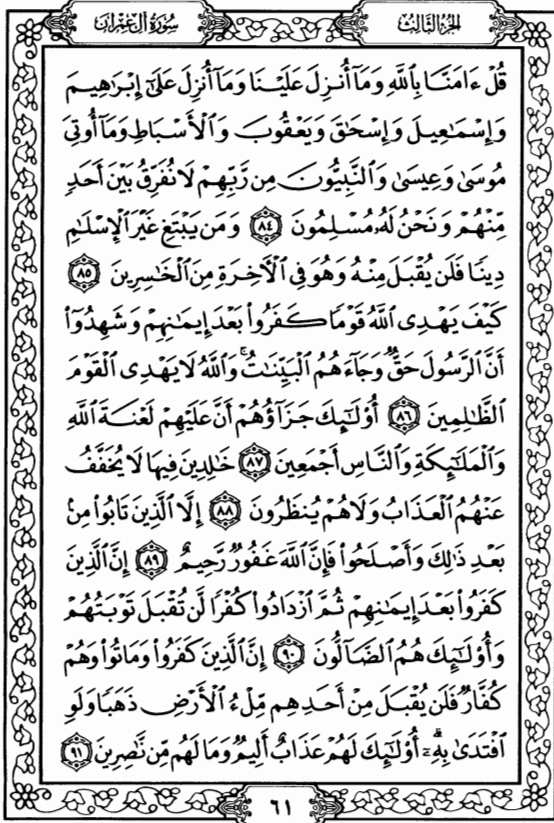 سُورَةُ آلِ عِمْرَانَ
الجُزْءُ الثَّالِثُ
قُلْ ءَامَنَّا بِٱللَّهِ وَمَآ أُنزِلَ عَلَيْنَا وَمَآ أُنزِلَ عَلَىٰٓ إِبْرَٰهِيمَ
وَإِسْمَٰعِيلَ وَإِسْحَٰقَ وَيَعْقُوبَ وَٱلْأَسْبَاطِ وَمَآ أُوتِيَ
مُوسَىٰ وَعِيسَىٰ وَٱلنَّبِيُّونَ مِن رَّبِّهِمْ لَا نُفَرِّقُ بَيْنَ أَحَدٍ
مِّنْهُمْ وَنَحْنُ لَهُۥ مُسْلِمُونَ ٨٤ وَمَن يَبْتَغِ غَيْرَ ٱلْإِسْلَٰمِ
دِينًا فَلَن يُقْبَلَ مِنْهُ وَهُوَ فِي ٱلْأَخِرَةِ مِنَ ٱلْخَٰسِرِينَ ٨٥
كَيْفَ يَهْدِى ٱللَّهُ قَوْمًا كَفَرُوا۟ بَعْدَ إِيمَٰنِهِمْ وَشَهِدُوٓا۟
أَنَّ ٱلرَّسُولَ حَقٌّ وَجَآءَهُمُ ٱلْبَيِّنَٰتُ ۚ وَٱللَّهُ لَا يَهْدِى ٱلْقَوْمَ
ٱلظَّٰلِمِينَ ٨٦ أُو۟لَٰٓئِكَ جَزَآؤُهُمْ أَنَّ عَلَيْهِمْ لَعْنَةَ ٱللَّهِ
وَٱلْمَلَٰٓئِكَةِ وَٱلنَّاسِ أَجْمَعِينَ ٨٧ خَٰلِدِينَ فِيهَا لَا يُخَفَّفُ
عَنْهُمُ ٱلْعَذَابُ وَلَا هُمْ يُنظَرُونَ ٨٨ إِلَّا ٱلَّذِينَ تَابُوا۟ مِنۢ
بَعْدِ ذَٰلِكَ وَأَصْلَحُوا۟ فَإِنَّ ٱللَّهَ غَفُورٌ رَّحِيمٌ ٨٩ إِنَّ ٱلَّذِينَ
كَفَرُوا۟ بَعْدَ إِيمَٰنِهِمْ ثُمَّ ٱزْدَادُوا۟ كُفْرًا لَّن تُقْبَلَ تَوْبَتُهُمْ
وَأُو۟لَٰٓئِكَ هُمُ ٱلضَّآلُّونَ ٩٠ إِنَّ ٱلَّذِينَ كَفَرُوا۟ وَمَاتُوا۟ وَهُمْ
كُفَّارٌ فَلَن يُقْبَلَ مِنْ أَحَدِهِم مِّلْءُ ٱلْأَرْضِ ذَهَبًا وَلَوِ
ٱفْتَدَىٰ بِهِۦٓ ۗ أُو۟لَٰٓئِكَ لَهُمْ عَذَابٌ أَلِيمٌ وَمَا لَهُم مِّن نَّٰصِرِينَ ٩١
٦١